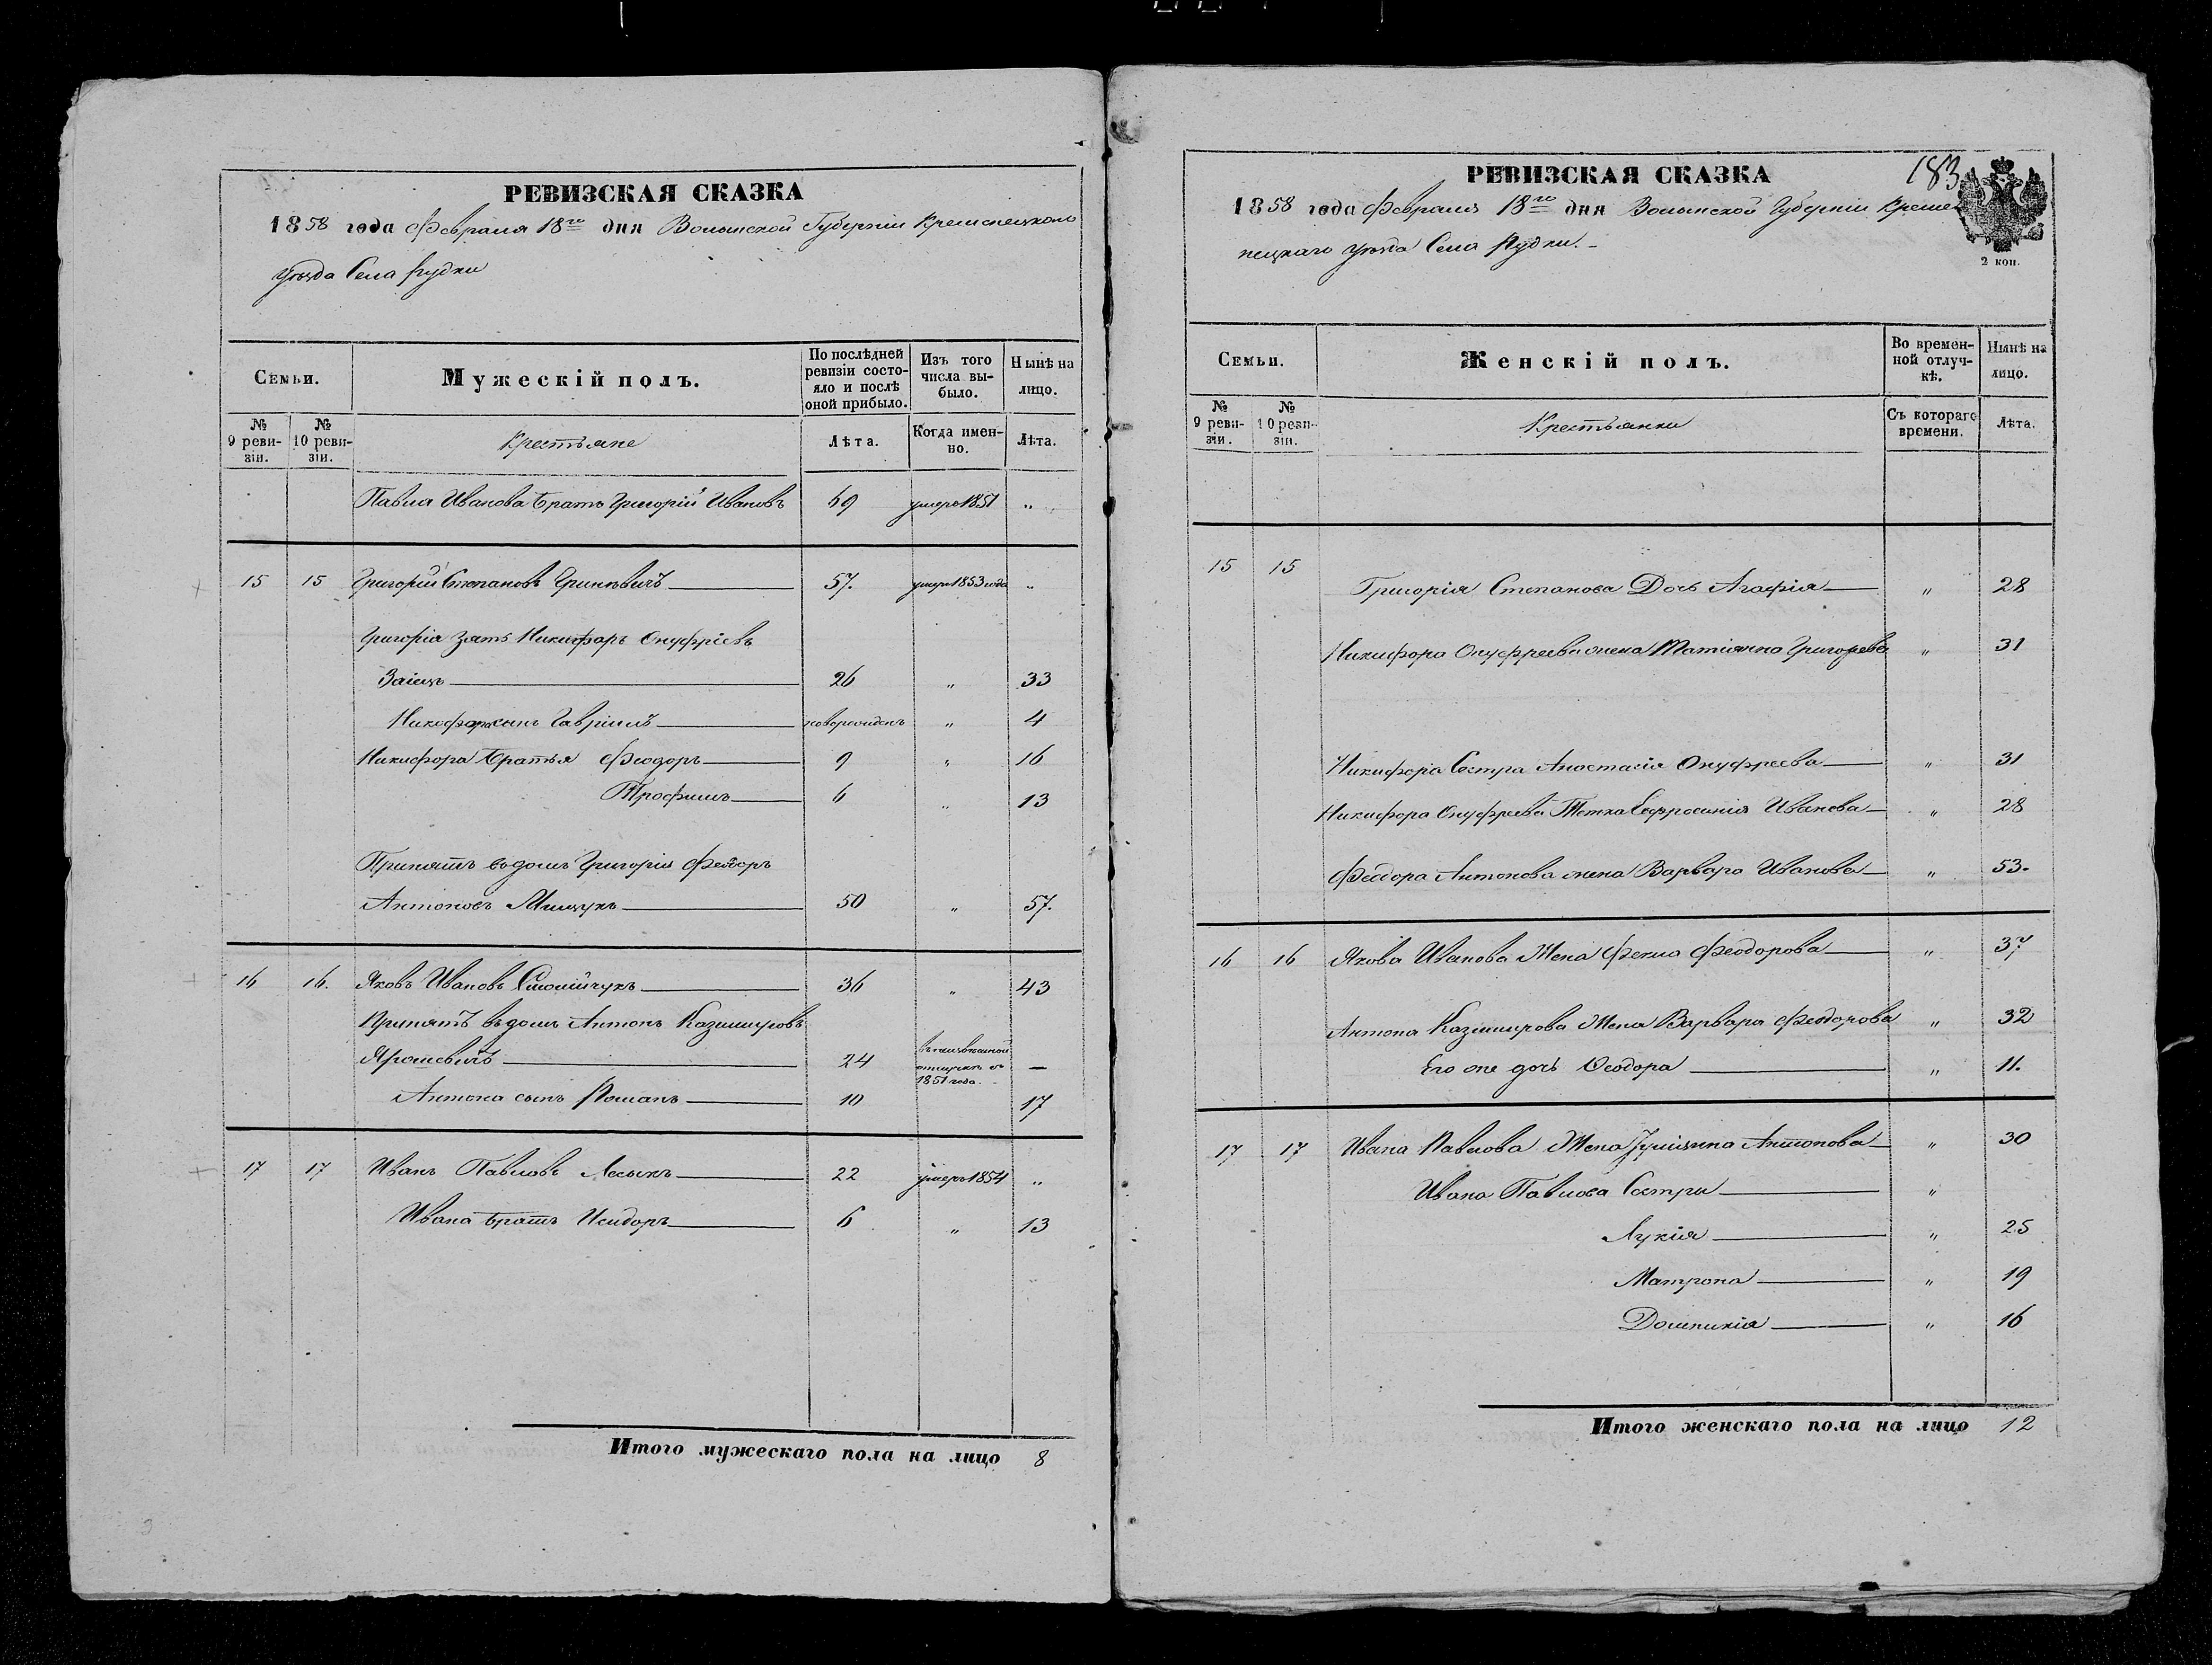 РЕВИЗСКАЯ СКАЗКА
1858 года Февраля 18го дня Волынской Губерніи Кременецкаго
уѣзда Села Рудки
Семьи.
Мужескій полъ.
По послѣдней ревизіи состояло и послѣ оной прибыло.
Изъ того числа выбыло.
Нынѣ на лицо.
№ 9 ревизіи.
№ 10 ревизіи.
Крестьяне
Лѣта.
Когда именно.
Лѣта.
Павла Иванова братъ Григорій Ивановъ 69 умеръ 1851 "
15 15 Григорій Степановъ Гриневичъ 57. умеръ 1853 года "
Григорія зять Никифоръ Онуфріевъ
Заіецъ 26 " 33
Никифора сынъ Гавріилъ новорожденъ " 4
Никифора братья Феодоръ 9 " 16
Трофимъ 6 " 13
Принятъ въ домъ Григорія Феодоръ
Антоновъ Мищукъ 50 " 57.
16 16. Яковъ Ивановъ 36 " 43
Принятъ въ домъ Антонъ Казимировъ
Ярошевичъ 24 отлучкѣ съ 1851 года. —
Антона сынъ Романъ 10 17
17 17 Иванъ Павловъ Лесыкъ 22 умеръ 1854 "
Ивана братъ Исидоръ 6 " 13
Итого мужескаго пола на лицо 8
183
РЕВИЗСКАЯ СКАЗКА
1858 года Февраля 18го дня Волынской Губерніи Креме-
нецкаго уѣзда Села Рудки. -
2 коп.
Семьи.
Женскій полъ.
Во временной отлучкѣ.
Нынѣ на лицо.
№ 9 ревизіи.
№ 10 ревизіи.
Крестьянки
Съ котораго времени.
Лѣта.
15 15 Григорія Степанова Дочь Агафія " 28
Никифора Онуфреева жена Татіянна Григорьева " 31
Никифора Сестра Анастасія Онуфреева " 31
Никифора Онуфреева Тетка Ефросинія Иванова " 28
Феодора Антонова жена Варвара Иванова " 53.
16 16 Якова Иванова Жена Фекла Феодорова " 37
Антона Казимирова Жена Варвара Феодорова " 32
Его же дочь Феодора " 11.
17 17 Ивана Павлова Жена Антонова " 30
Ивана Павлова Сестры "
Лукія " 25
Матрона " 19
Домникія " 16
Итого женскаго пола на лицо 12